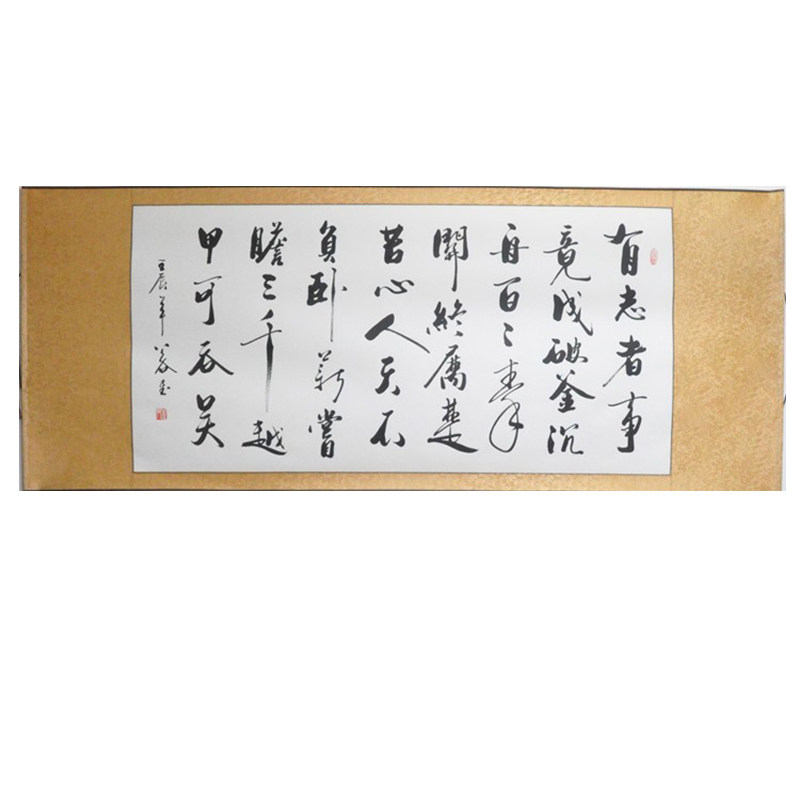 有志者事
竟成破釜沉
舟百二秦
關終屬楚
苦心人天不
負卧薪嘗
膽三千越
甲可吞吴
壬辰年